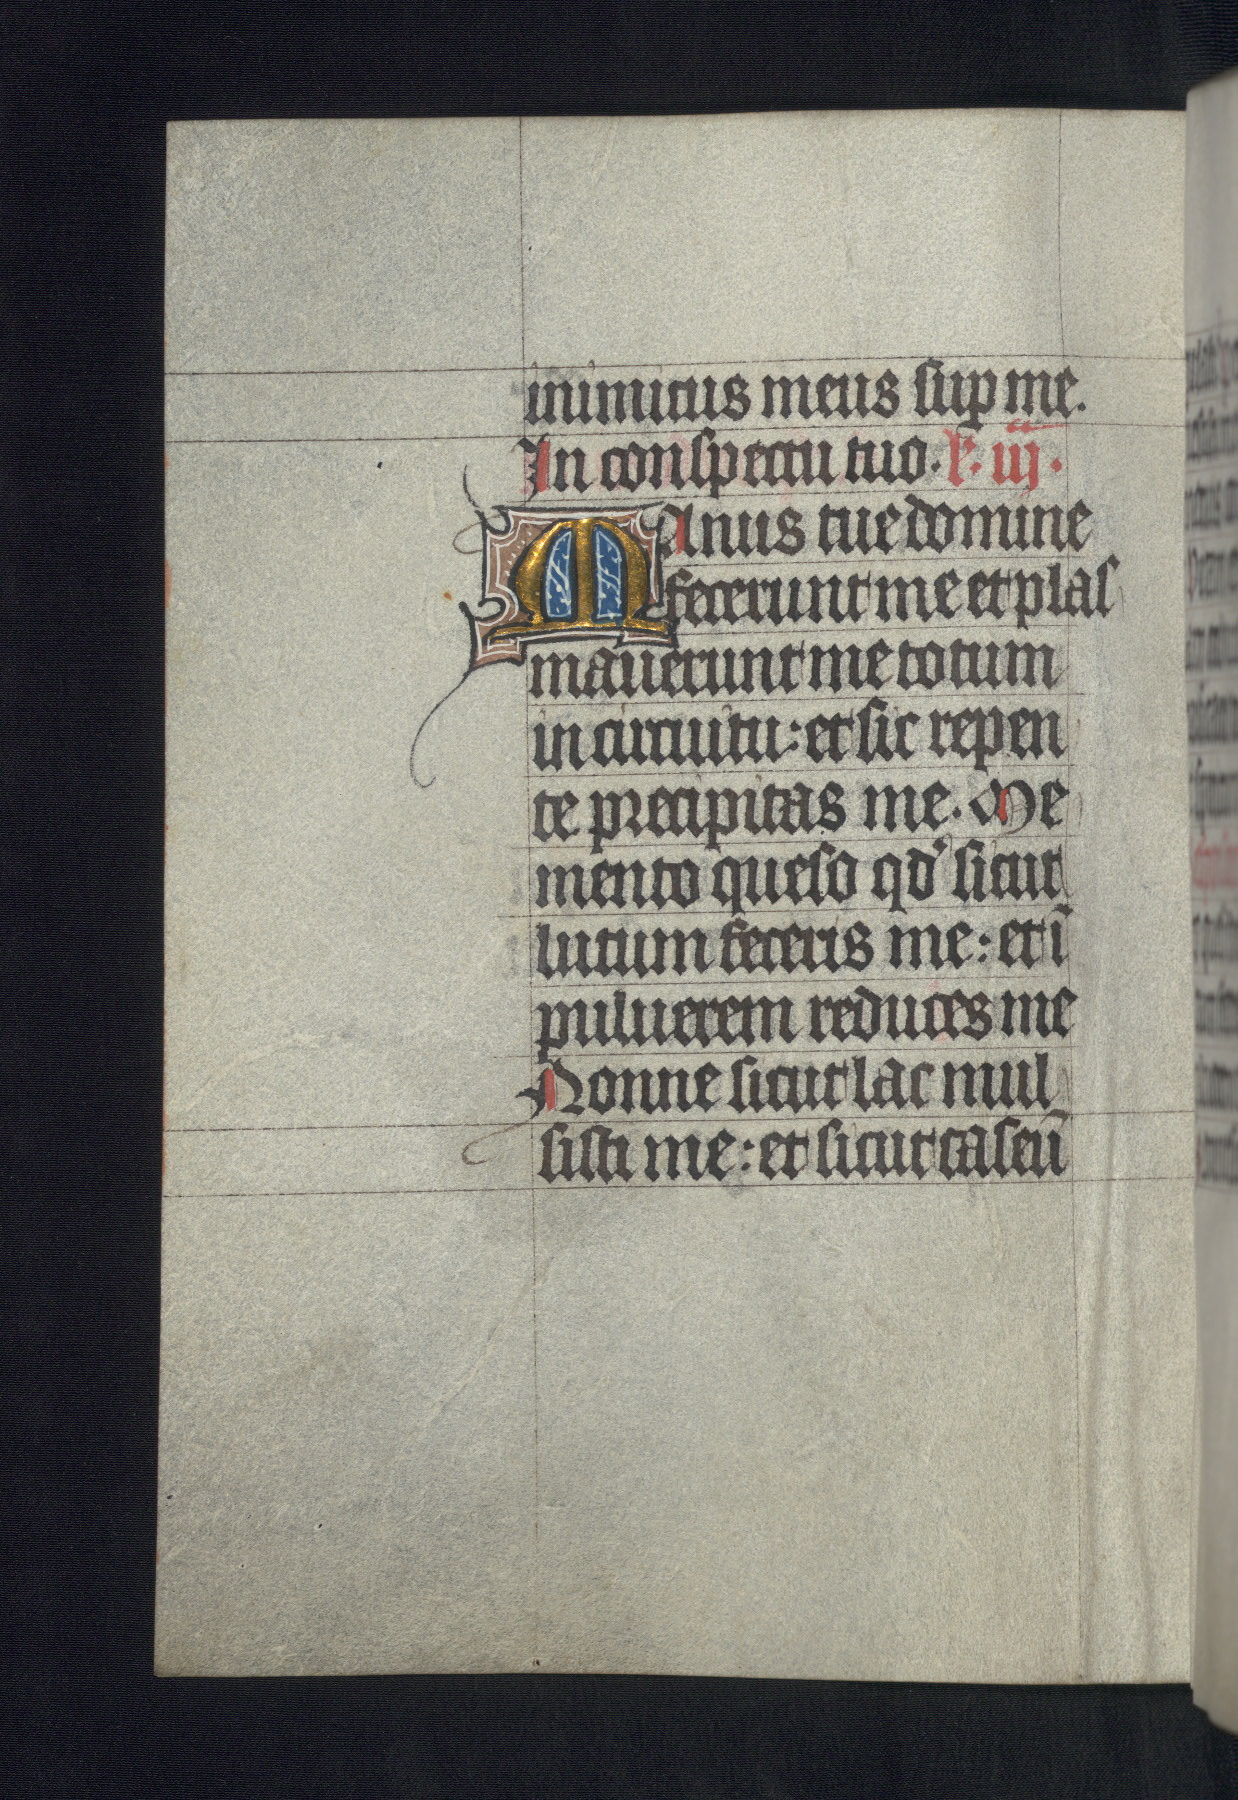 inimicus meus sup me.
In conspectu tuo. l. iij.
Manus tue domine
fecerunt me et plas
mauerunt me totum
in circuitu: et sic repen
te precipitas me. Me
mento queso qd' sicut
lutum feceris me: et ī
puluerem reduces me
Nonne sicut lac mul
sisti me: et sicut caseū